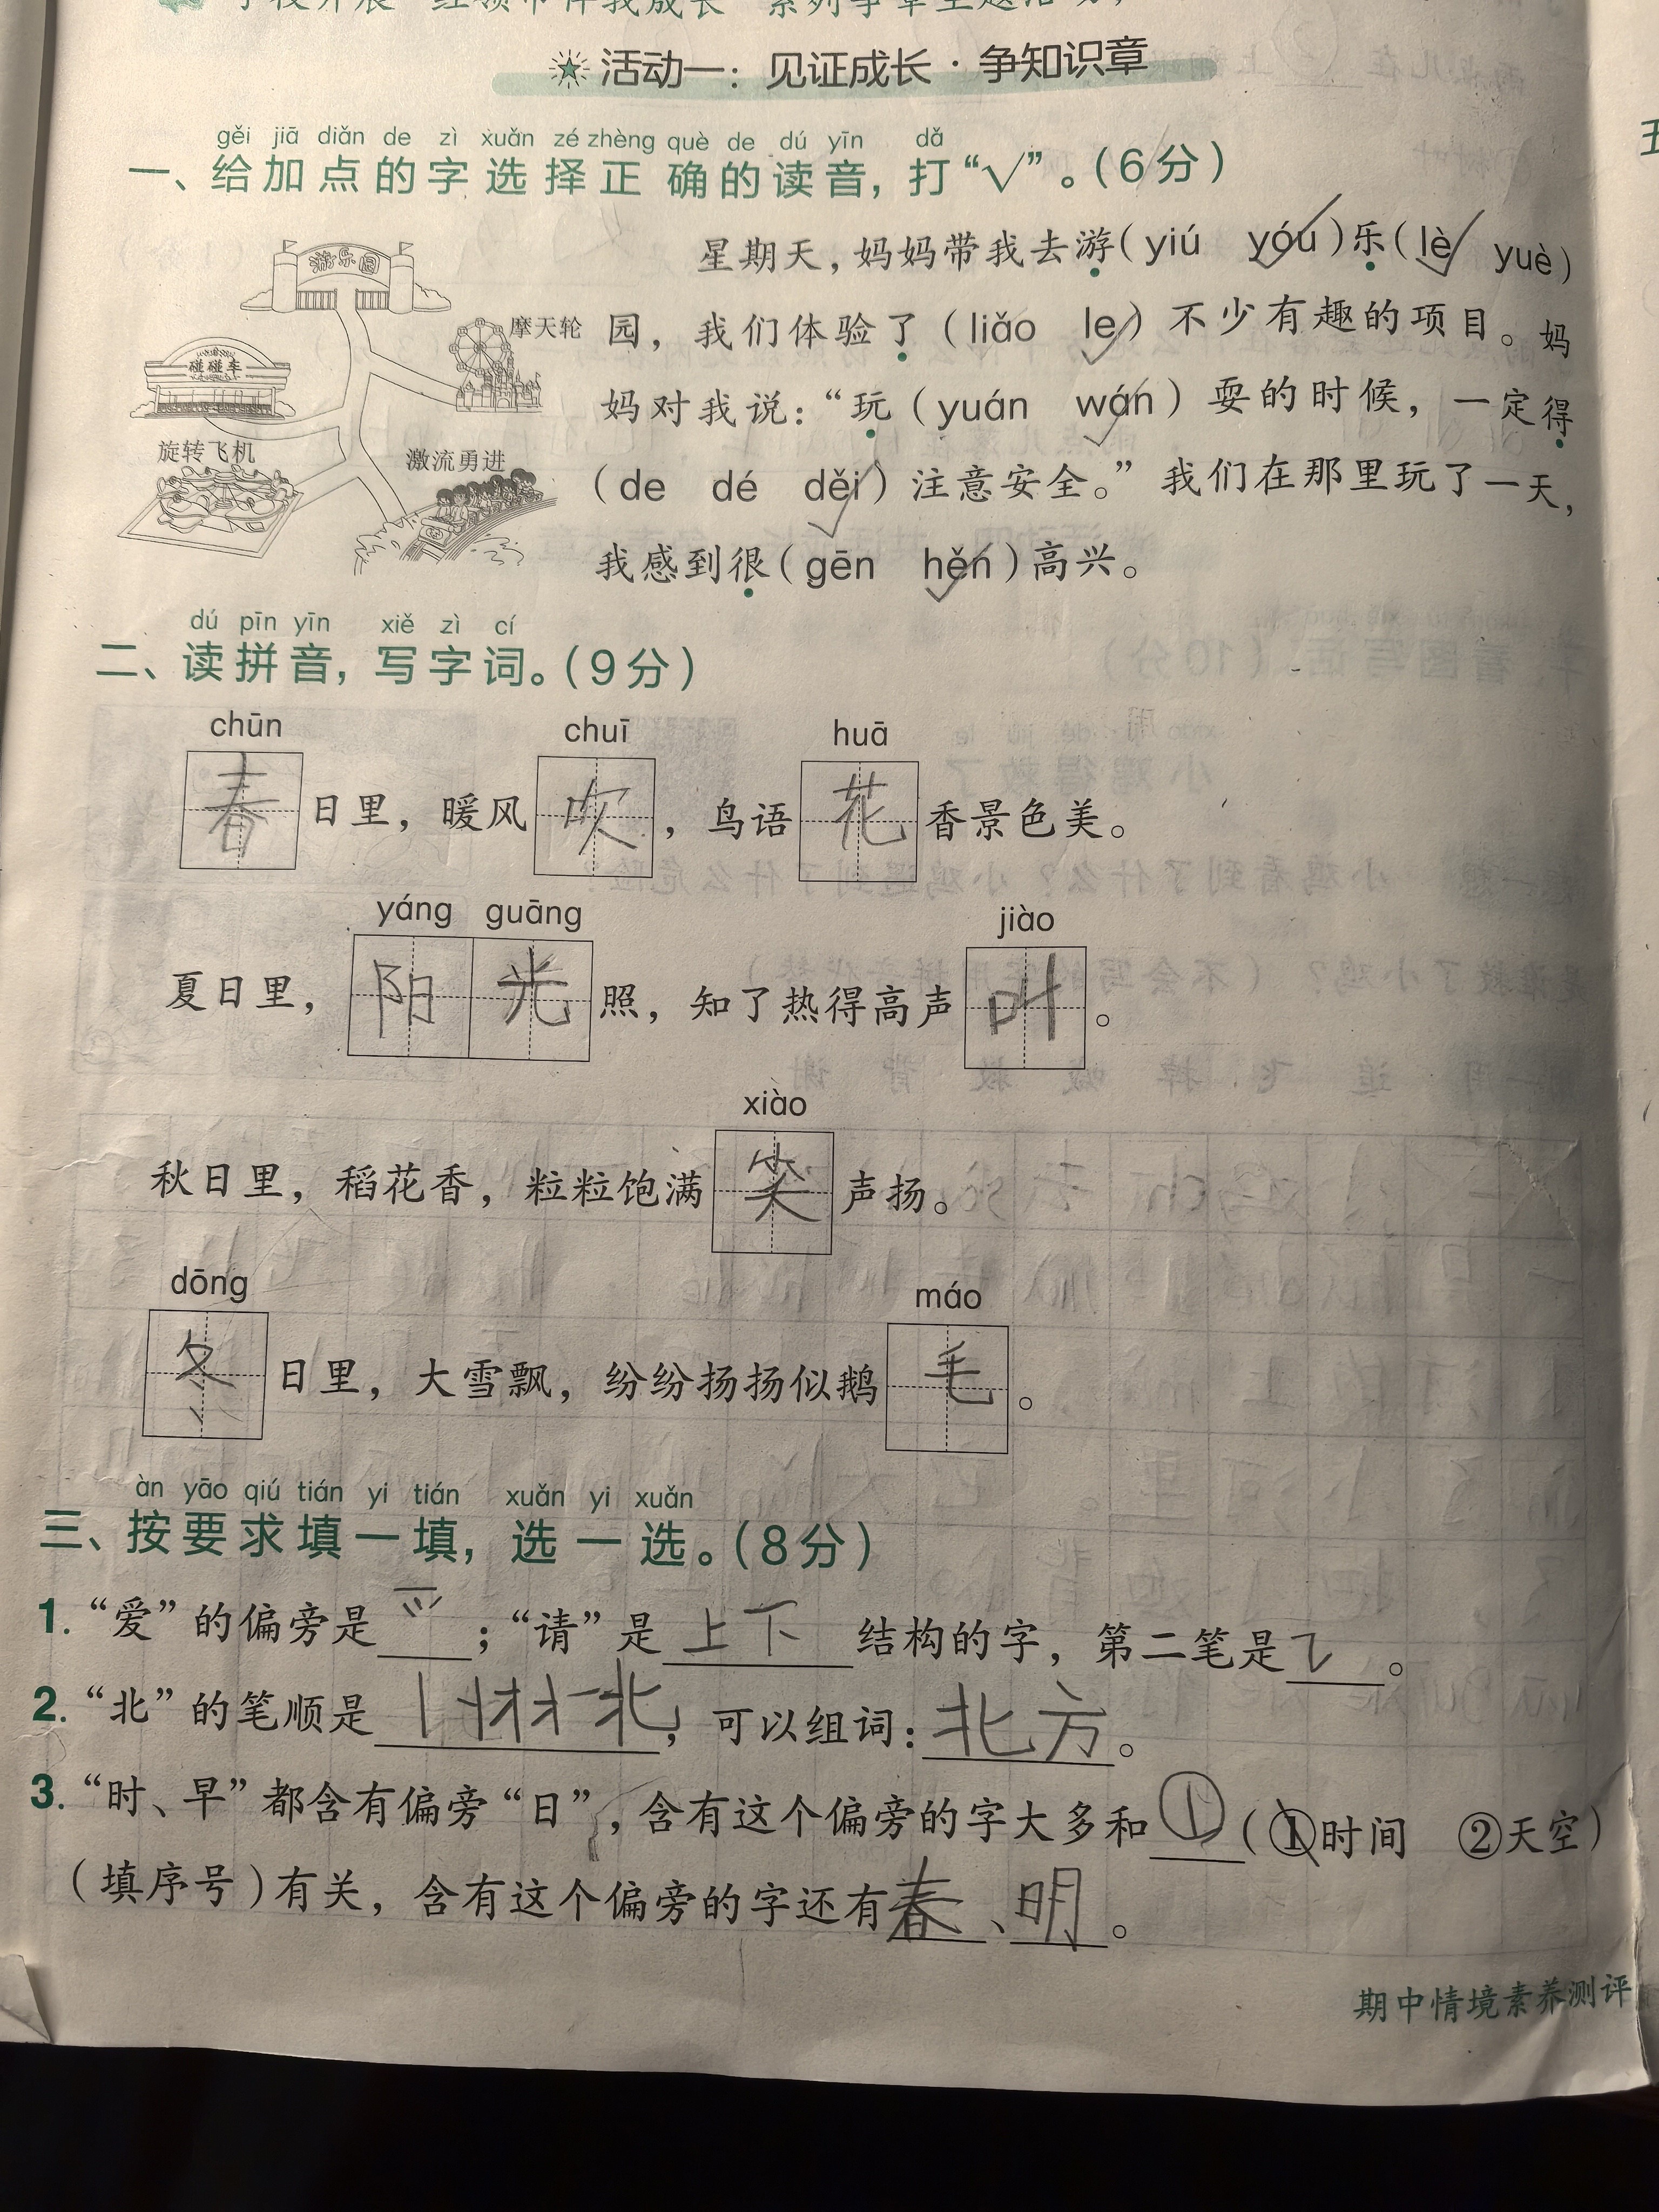 活动一：见证成长·争知识章
gěi jiā diǎn de zì xuǎn zé zhèng què de dú yīn dǎ
一、给加点的字选择正确的读音，打“√”。（6分）
游乐园
摩天轮
碰碰车
旋转飞机
激流勇进
星期天，妈妈带我去游（yiú yóu）乐（lè yuè）
园，我们体验了（liǎo le）不少有趣的项目。妈
妈对我说：“玩（yuán wán）耍的时候，一定得
（de dé děi）注意安全。”我们在那里玩了一天，
我感到很（gēn hěn）高兴。
dú pīn yīn xiě zì cí
二、读拼音，写字词。（9分）
chūn chuī huā
春日里，暖风吹，鸟语花香景色美。
yáng guāng jiào
夏日里，阳光照，知了热得高声叶。
xiào
秋日里，稻花香，粒粒饱满笑声扬。
dōng máo
冬日里，大雪飘，纷纷扬扬似鹅毛。
àn yāo qiú tián yi tián xuǎn yi xuǎn
三、按要求填一填，选一选。（8分）
1.“爱”的偏旁是爫；“请”是上下结构的字，第二笔是㇊。
2.“北”的笔顺是北，可以组词：北方。
3.“时、早”都含有偏旁“日”，含有这个偏旁的字大多和①（①时间 ②天空）
（填序号）有关，含有这个偏旁的字还有春、明。
期中情境素养测评